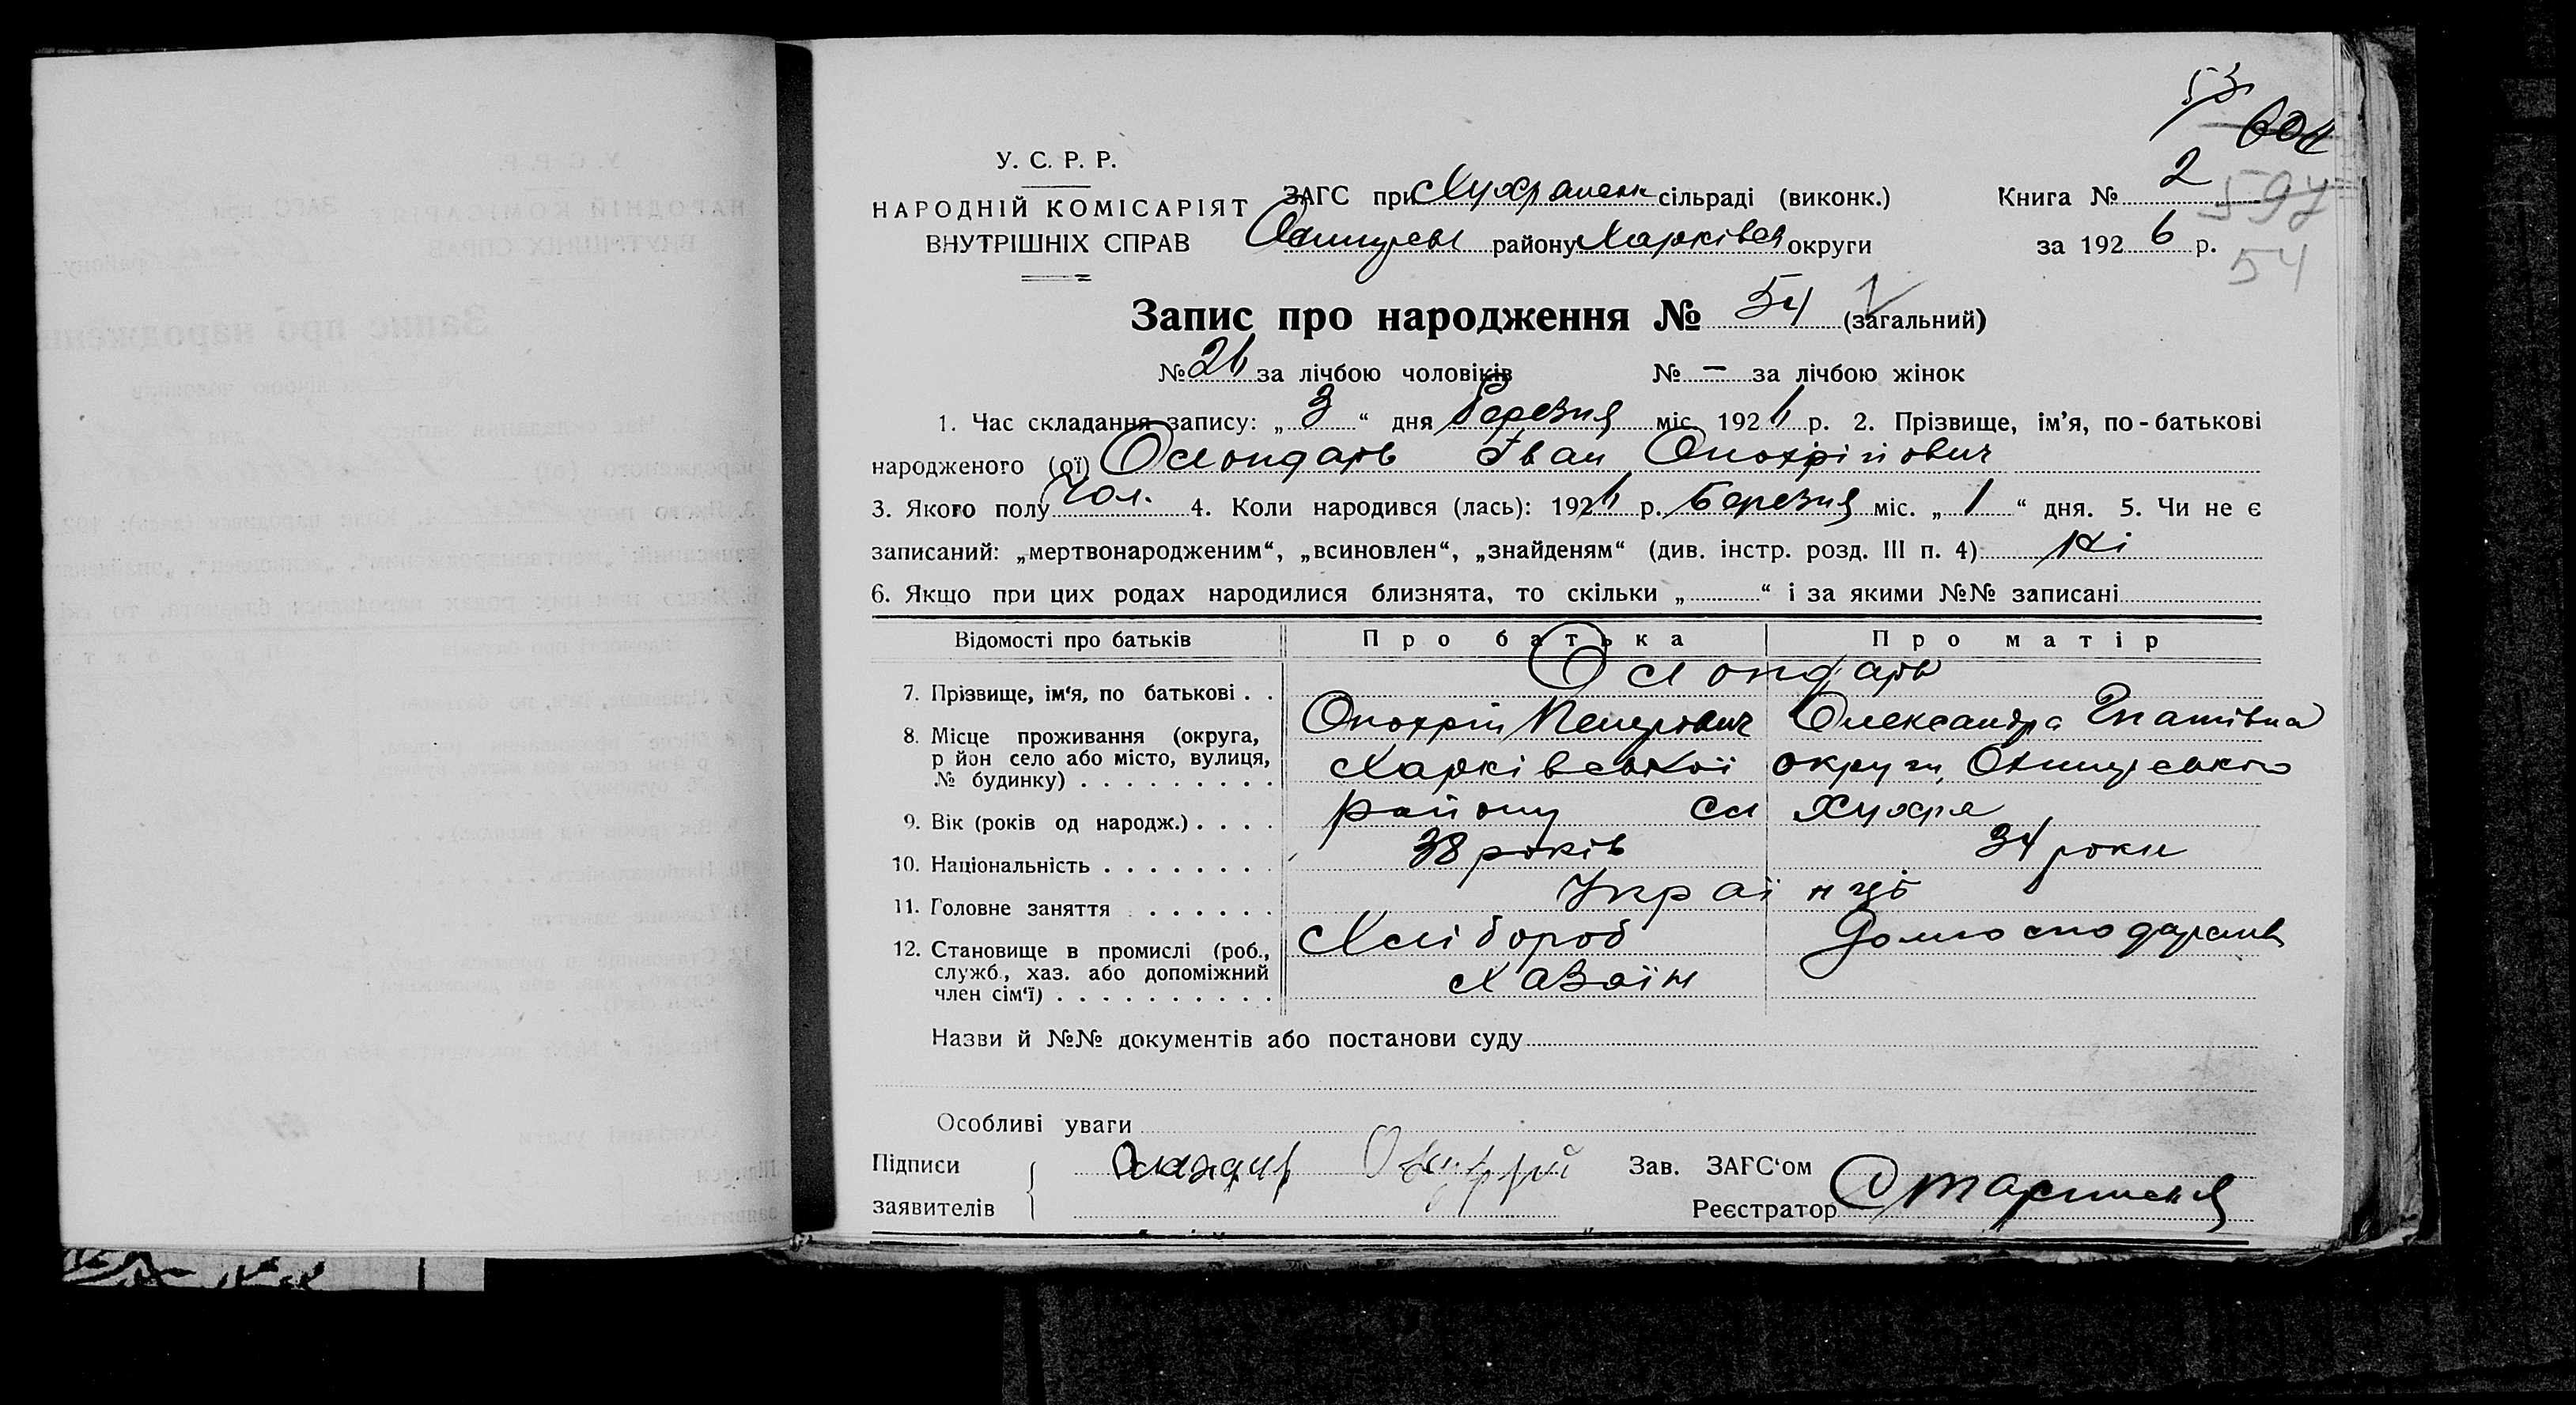 53
604
У. С. Р. Р.
НАРОДНІЙ КОМІСАРІЯТ
ВНУТРІШНІХ СПРАВ
ЗАГС при Хухрянськ сільраді (виконк.)
району Харківськ округи
Книга № 2
597
за 1926 р.
54
Запис про народження № 54 (загальний)
№ 26 за лічбою чоловіків № — за лічбою жінок
1. Час складання запису: „ 3 “ дня Березня міс. 1926 р. 2. Прізвище, ім’я, по-батькові
народженого (ої) Іван
3. Якого полу Чол. 4. Коли народився (лась): 1926 р. Березня міс. „ 1 “ дня. 5. Чи не є
записаний: „мертвонародженим“, „всиновлен“, „знайденям“ (див. інстр. розд. III п. 4) Ні
6. Якщо при цих родах народилися близнята, то скільки „ “ і за якими №№ записані
Відомості про батьків Про батька Про матір
7. Прізвище, ім‘я, по батькові . .
8. Місце проживання (округа,
р йон село або місто, вулиця,
№ будинку) . . . . . . . . .
Петрович Олександра Гнатівна
Харківської округи
району сл Хухря
9. Вік (років од народж.) . . . . 38 років 34 роки
10. Національність . . . . . . . . Українці
11. Головне заняття . . . . . . . Хлібороб
12. Становище в промислі (роб.,
служб., хаз. або допоміжний
член сім‘ї) . . . . . . . . . . Хазаїн
Назви й №№ документів або постанови суду
Особливі уваги
Підписи
заявителів
Зав. ЗАГС‘ом
Реєстратор